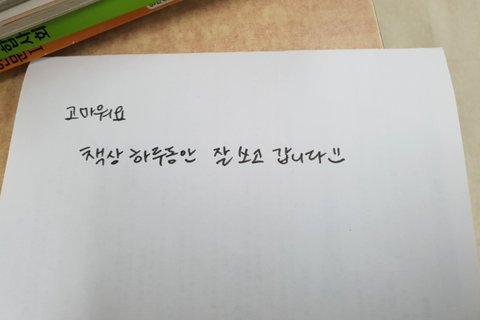 고마워요
책상 하루동안 잘 쓰고 갑니다 :)